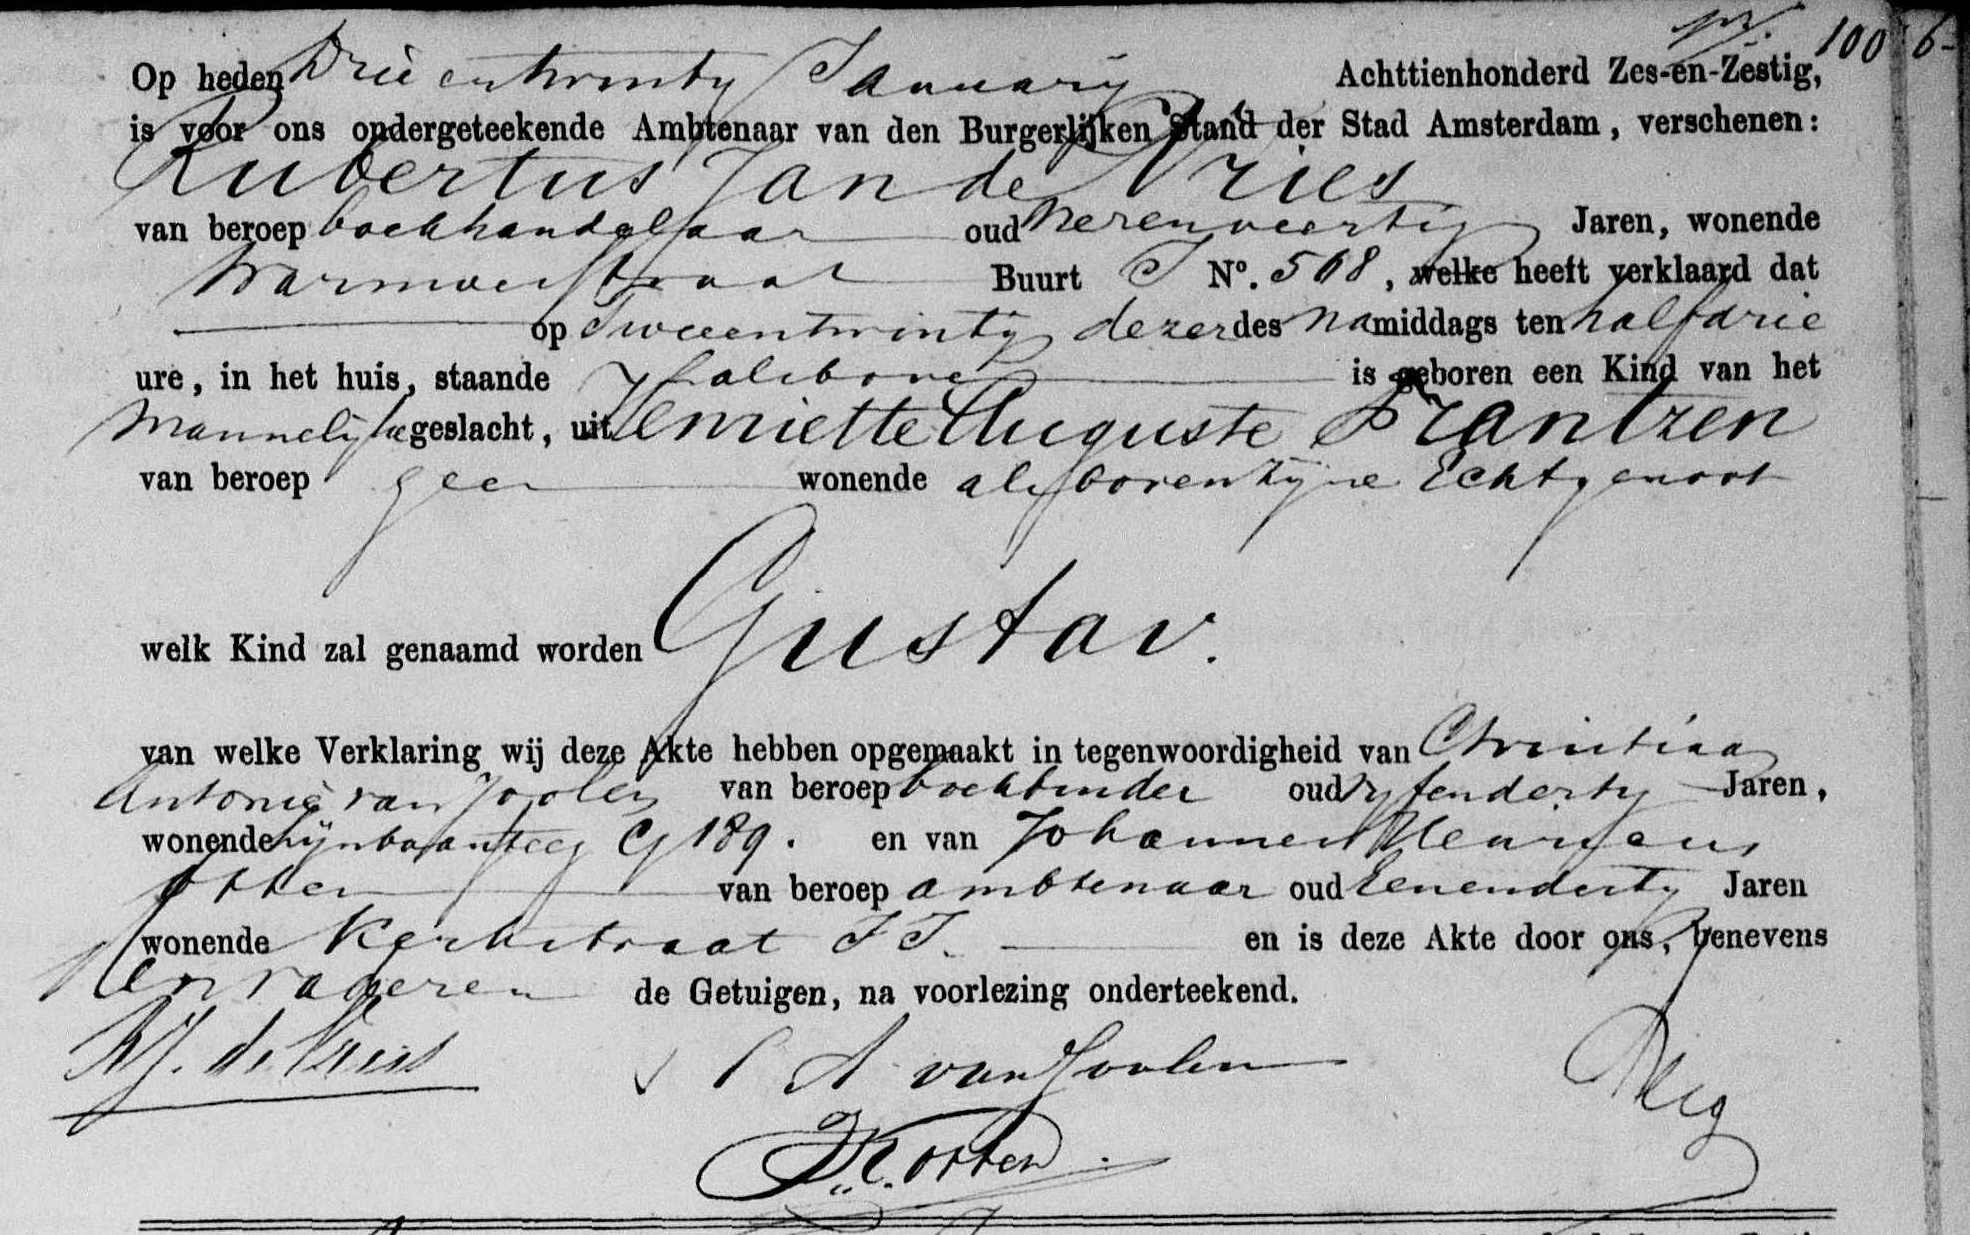 100 6
Op heden Drie en twintig January Achttienhonderd Zes-en-Zestig,
is voor ons ondergeteekende Ambtenaar van den Burgerlijken Stand der Stad Amsterdam, verschenen:
Rubertus Jan de Vries
van beroep boekhandelaar oud Jaren, wonende
Warmoesstraat Buurt J No. 568, welke heeft verklaard dat
op Tweeentwintig dezer des Namiddags ten half drie
ure, in het huis, staande Alsboven is geboren een Kind van het
Mannelijke geslacht, uit Henriette Auguste Frantzen
van beroep geen wonende als boven zijne Echtgenoot
welk Kind zal genaamd worden Gustav.
van welke Verklaring wij deze Akte hebben opgemaakt in tegenwoordigheid van Christiaan
Antonie van Joolen van beroep boekbinder oud vyfendertig Jaren,
wonende Lijnbaansteeg G 189. en van Johannes
Otten van beroep ambtenaar oud Eenendertig Jaren
wonende Kerkstraat en is deze Akte door ons, benevens
de Getuigen, na voorlezing onderteekend.
R J. de Vries C A van Joolen
Otten